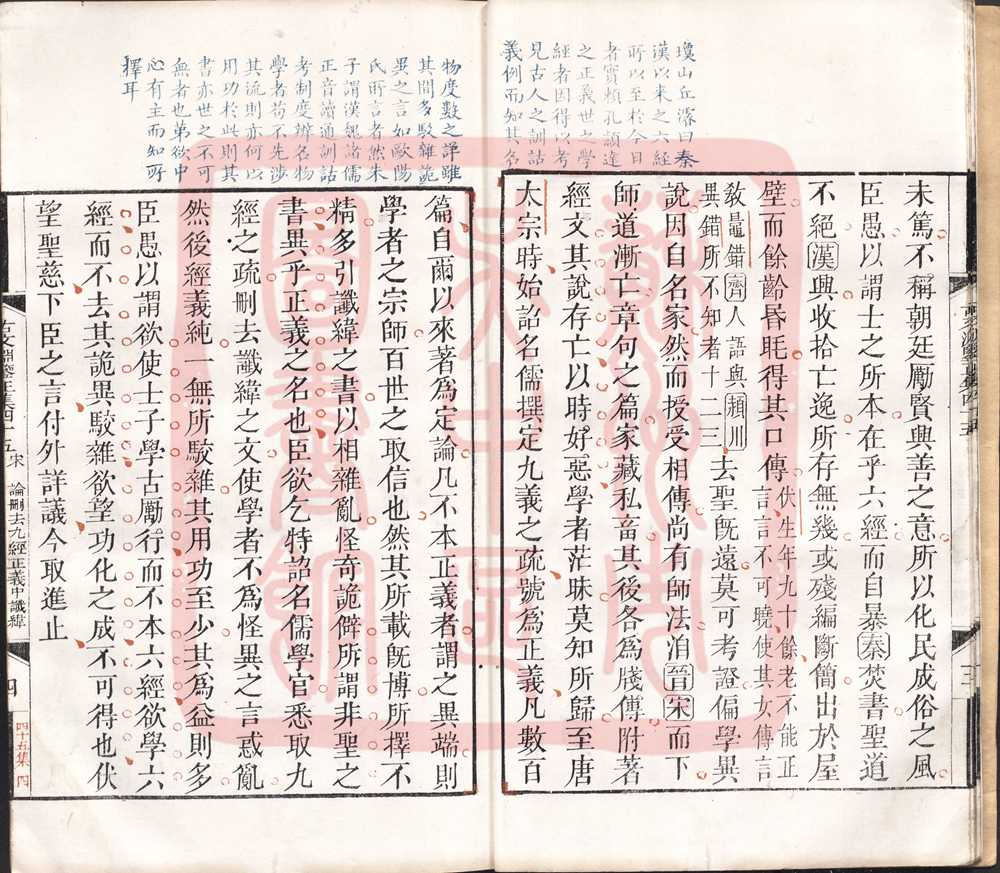 瓊山丘濬曰秦
漢以來之六經
所以至於今日
者實頼孔頴達
之正義世之學
經者因得以考
見古人之訓詁
義例而知其名
未篤不稱朝廷勵賢興善之意所以化民成俗之風
臣愚以謂士之所本在乎六經而自暴秦焚書聖道
不絕漢興收拾亡逸所存無幾或殘編斷簡出於屋
壁而餘齡昏眊得其口傳伏生年九十餘老不能正言言不可曉使其女傳言
敎鼂錯齊人語與頴川異錯所不知者十二三去聖旣遠莫可考證偏學異
說因自名家然而授受相傳尚有師法洎晉宋而下
師道漸亡章句之篇家藏私畜其後各爲牋傳附著
經文其說存亡以時好惡學者茫昧莫知所歸至唐
太宗時始詔名儒撰定九義之疏號爲正義凡數百
物度數之詳雖
其間多駁雜詭
異之言如歐陽
氏所言者然朱
子謂漢魏諸儒
正音讀通訓詁
考制度辨名物
學者苟不先涉
其流則亦何以
用功於此則其
書亦世之不可
無者也第欲中
心有主而知所
擇耳
篇自爾以來著爲定論凡不本正義者謂之異端則
學者之宗師百世之取信也然其所載旣博所擇不
精多引讖緯之書以相雜亂怪奇詭僻所謂非聖之
書異乎正義之名也臣欲乞特詔名儒學官悉取九
經之疏刪去讖緯之文使學者不爲怪異之言惑亂
然後經義純一無所駮雜其用功至少其爲益則多
臣愚以謂欲使士子學古勵行而不本六經欲學六
經而不去其詭異駮雜欲望功化之成不可得也伏
望聖慈下臣之言付外詳議今取進止
古文淵鑒正集四十五 宋 論刪去九經正義中讖緯 四
四十五集 四